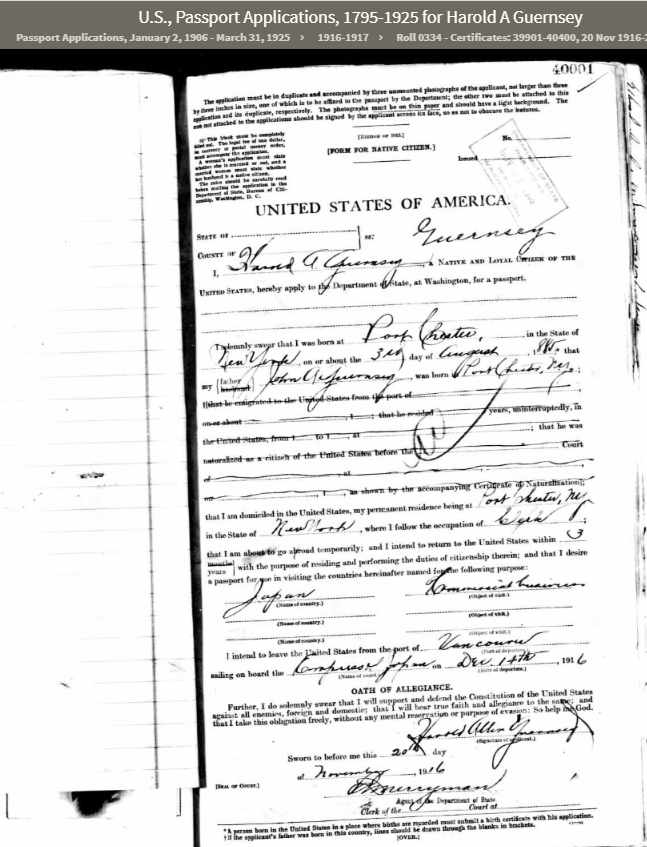 U.S., Passport Applications, 1795-1925 for Harold A Guernsey
Passport Applications, January 2, 1906 - March 31, 1925 › 1916-1917 › Roll 0334 - Certificates: 39901-40400, 20 Nov 1916-2
40001
The application must be in duplicate and accompanied by three unmounted photographs of the applicant, not larger than three
by three inches in size, one of which is to be affixed to the passport by the Department; the other two must be attached to this
application and its duplicate, respectively. The photographs must be on thin paper and should have a light background. The
one not attached to the applications should be signed by the applicant across its face, so as not to obscure the features.
This blank must be completely
filled out. The legal fee of one dollar,
in currency or postal money order,
must accompany the application.
A woman's application must state
whether she is married or not, and a
married woman must state whether
her husband is a native citizen.
The rules should be carefully read
before mailing the application to the
Department of State, Bureau of Citi-
zenship, Washington, D. C.
[FORM FOR NATIVE CITIZEN.]
No.
Issued
UNITED STATES OF AMERICA.
STATE OF
COUNTY OF
ss:
Guernsey
I, Harold A Guernsey, a NATIVE AND LOYAL CITIZEN OF THE
UNITED STATES, hereby apply to the Department of State, at Washington, for a passport.
I solemnly swear that I was born at Port Chester, in the State of
New York, on or about the 3rd day of August, that
my father husband John A Guernsey, was born Port Chester, NY;
that he emigrated to the United States from the port of
on or about, 1; that he resided years, uninterruptedly, in
the United States, from 1 to 1, at; that he was
naturalized as a citizen of the United States before the Court
of, at
on, 1, as shown by the accompanying Certificate of Naturalization;
that I am domiciled in the United States, my permanent residence being at Port Chester, NY
in the State of New York, where I follow the occupation of Clerk;
that I am about to go abroad temporarily; and I intend to return to the United States within 3
months years with the purpose of residing and performing the duties of citizenship therein; and that I desire
a passport for use in visiting the countries hereinafter named for the following purpose:
Japan Commercial business
(Name of country.) (Object of visit.)
(Name of country.) (Object of visit.)
(Name of country.) (Object of visit.)
I intend to leave the United States from the port of Vancouver
(Port of departure.)
sailing on board the Empress Japan on Dec. 14th, 1916
(Name of vessel.) (Date of departure.)
OATH OF ALLEGIANCE.
Further, I do solemnly swear that I will support and defend the Constitution of the United States
against all enemies, foreign and domestic; that I will bear true faith and allegiance to the same; and
that I take this obligation freely, without any mental reservation or purpose of evasion: So help me God.
Harold Allen Guernsey
(Signature of applicant.)
Sworn to before me this 20th day
of November, 1916
[SEAL OF COURT.]
Merryman
Agent of the Department of State
Clerk of the Court at
*A person born in the United States in a place where births are recorded must submit a birth certificate with his application.
†If the applicant's father was born in this country, lines should be drawn through the blanks in brackets.
[OVER.]